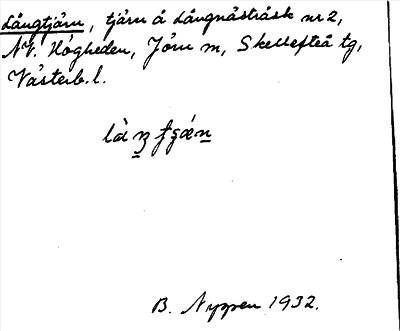 Långtjärn, tjärn å Långnästräsk nr 2,
NV. Högheden, Jörn m, Skellefteå tg,
Västerb. l.
B. Nyppen 1932.